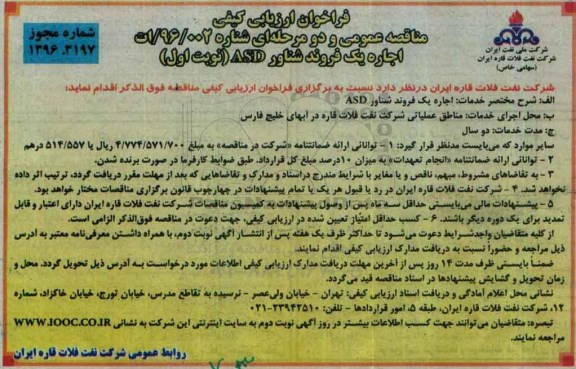 فراخوان ارزیابی کیفی
مناقصه عمومی و دو مرحله‌ای شناره ۹۶/۰۰۲/ات
اجاره یک فروند شناور ASD (نوبت اول)
شماره مجوز
۱۳۹۶.۳۱۹۷
شرکت ملی نفت ایران
شرکت نفت فلات قاره ایران
(سهامی خاص)
شرکت نفت فلات قاره ایران درنظر دارد نسبت به برگزاری فراخوان ارزیابی کیفی مناقصه فوق الذکر اقدام نماید:
الف: شرح مختصر خدمات: اجاره یک فروند شناور ASD
ب: محل اجرای خدمات: مناطق عملیاتی شرکت نفت فلات قاره در آبهای خلیج فارس
ج: مدت خدمات: دو سال
سایر موارد که می‌بایست مدنظر قرار گیرد: ۱ - توانائی ارائه ضمانتنامه «شرکت در مناقصه» به مبلغ ۴/۷۷۴/۵۷۱/۷۰۰ ریال یا ۵۱۴/۵۵۷ درهم
۲ - توانائی ارائه ضمانتنامه «انجام تعهدات» به میزان ۱۰درصد مبلغ کل قرارداد. طبق ضوابط کارفرما در صورت برنده شدن.
۳ - به تقاضاهای مشروط، مبهم، ناقص و یا مغایر با شرایط مندرج دراسناد و مدارک و تقاضاهایی که بعد از مهلت مقرر دریافت گردد، ترتیب اثر داده
نخواهد شد. ۴ - شرکت نفت فلات قاره ایران در رد یا قبول هر یک یا تمام پیشنهادات در چهارچوب قانون برگزاری مناقصات مختار خواهد بود.
۵ - پیشنهادات مالی می‌بایستی حداقل سه ماه پس از وصول پیشنهادات به کمیسیون مناقصات شرکت نفت فلات قاره ایران دارای اعتبار و قابل
تمدید برای یک دوره دیگر باشند. ۶ - کسب حداقل امتیاز تعیین شده در ارزیابی کیفی، جهت دعوت در مناقصه فوق‌الذکر الزامی است.
از کلیه متقاضیان واجدشرایط دعوت می‌شود تا حداکثر ظرف یک هفته پس از انتشار آگهی نوبت دوم، با همراه داشتن معرفی‌نامه معتبر به آدرس
ذیل مراجعه و حضوراً نسبت به دریافت مدارک ارزیابی کیفی اقدام نمایند.
ضمناً بایستی ظرف مدت ۱۴ روز پس از آخرین مهلت دریافت مدارک ارزیابی کیفی اطلاعات مورد درخواست به آدرس ذیل تحویل گردد. محل و
زمان تحویل و گشایش پیشنهادها در اسناد مناقصه قید می‌گردد.
نشانی محل اعلام آمادگی و دریافت اسناد ارزیابی کیفی: تهران - خیابان ولی‌عصر - نرسیده به تقاطع مدرس، خیابان تورج، خیابان خاکزاد، شماره
۱۲، شرکت نفت فلات قاره ایران، طبقه ۵، امور قراردادها - تلفن: ۲۳۹۴۲۵۱۰-۰۲۱
تبصره: متقاضیان می‌توانند جهت کسب اطلاعات بیشتر در روز آگهی نوبت دوم به سایت اینترنتی این شرکت به نشانی WWW.IOOC.CO.IR
مراجعه نمایند.
روابط عمومی شرکت نفت فلات قاره ایران